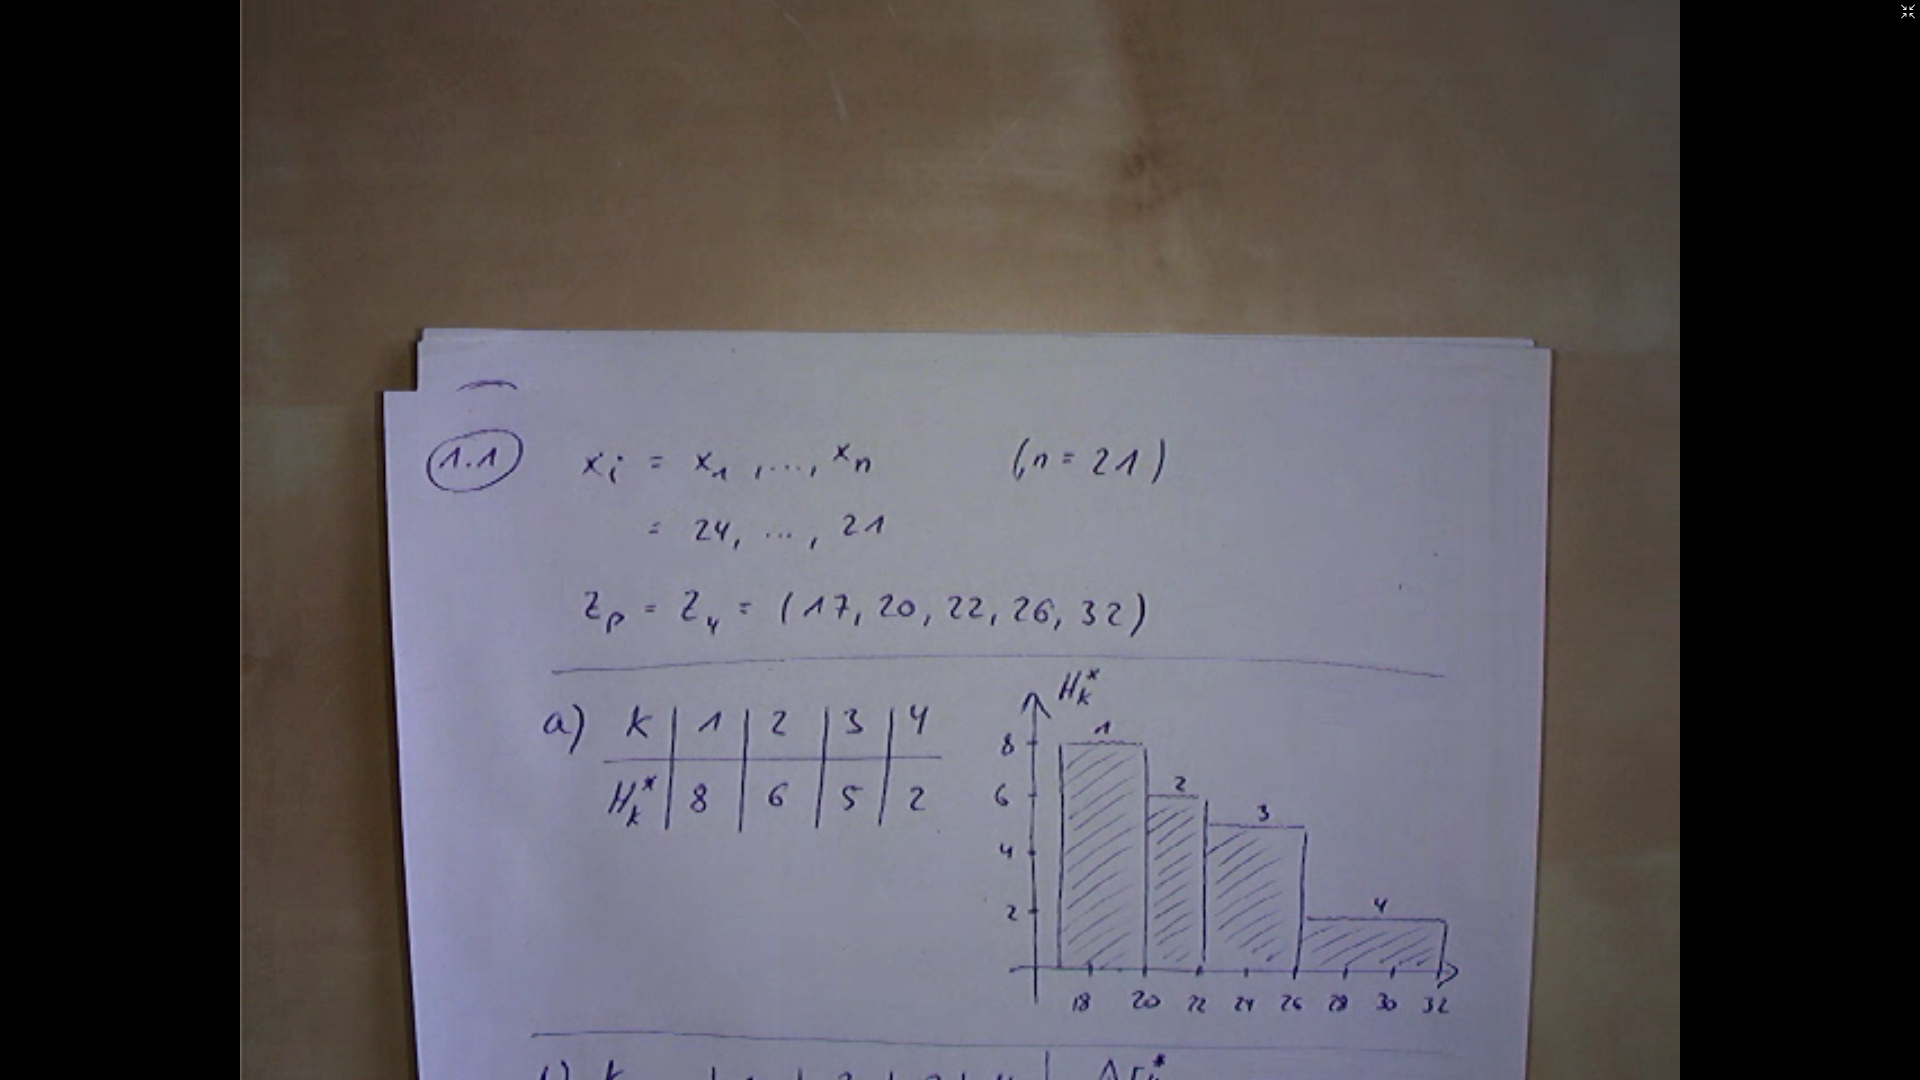 1.1 xᵢ = x₁, ..., xₙ (n = 21)
= 24, ..., 21
Zₚ = Z₄ = (17, 20, 22, 26, 32)
a) k | 1 | 2 | 3 | 4
Hₖ* | 8 | 6 | 5 | 2
Hₖ*
8
6
4
2
1
2
3
4
18 20 22 24 26 28 30 32